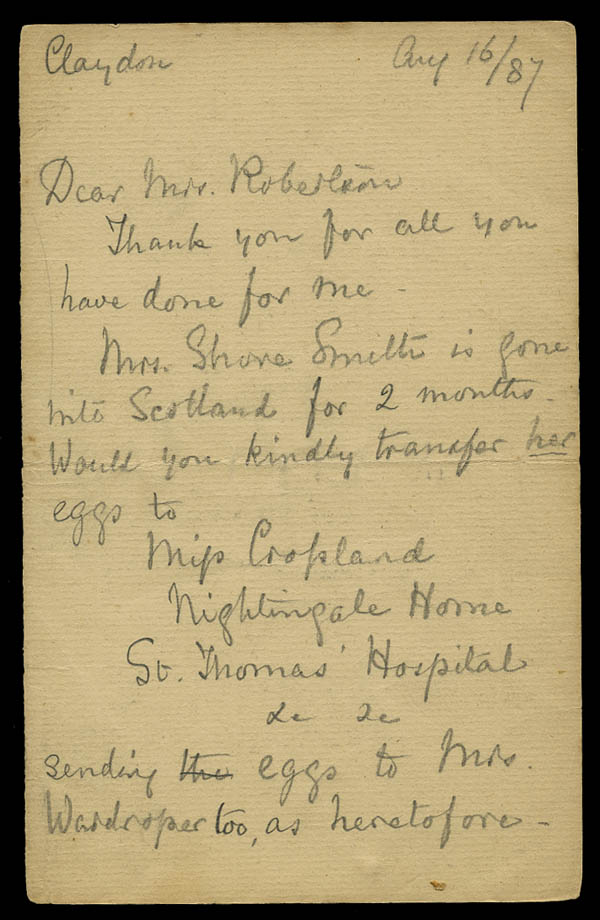 Claydon Aug 16/87
Dear Mrs. Robertson
Thank you for all you
have done for me -
Mrs. Shore Smith is gone
into Scotland for 2 months.
Would you kindly transfer her
eggs to
Miss Crossland
Nightingale Home
St. Thomas' Hospital
&c &c
sending the eggs to Mrs.
Wardroper too, as heretofore -